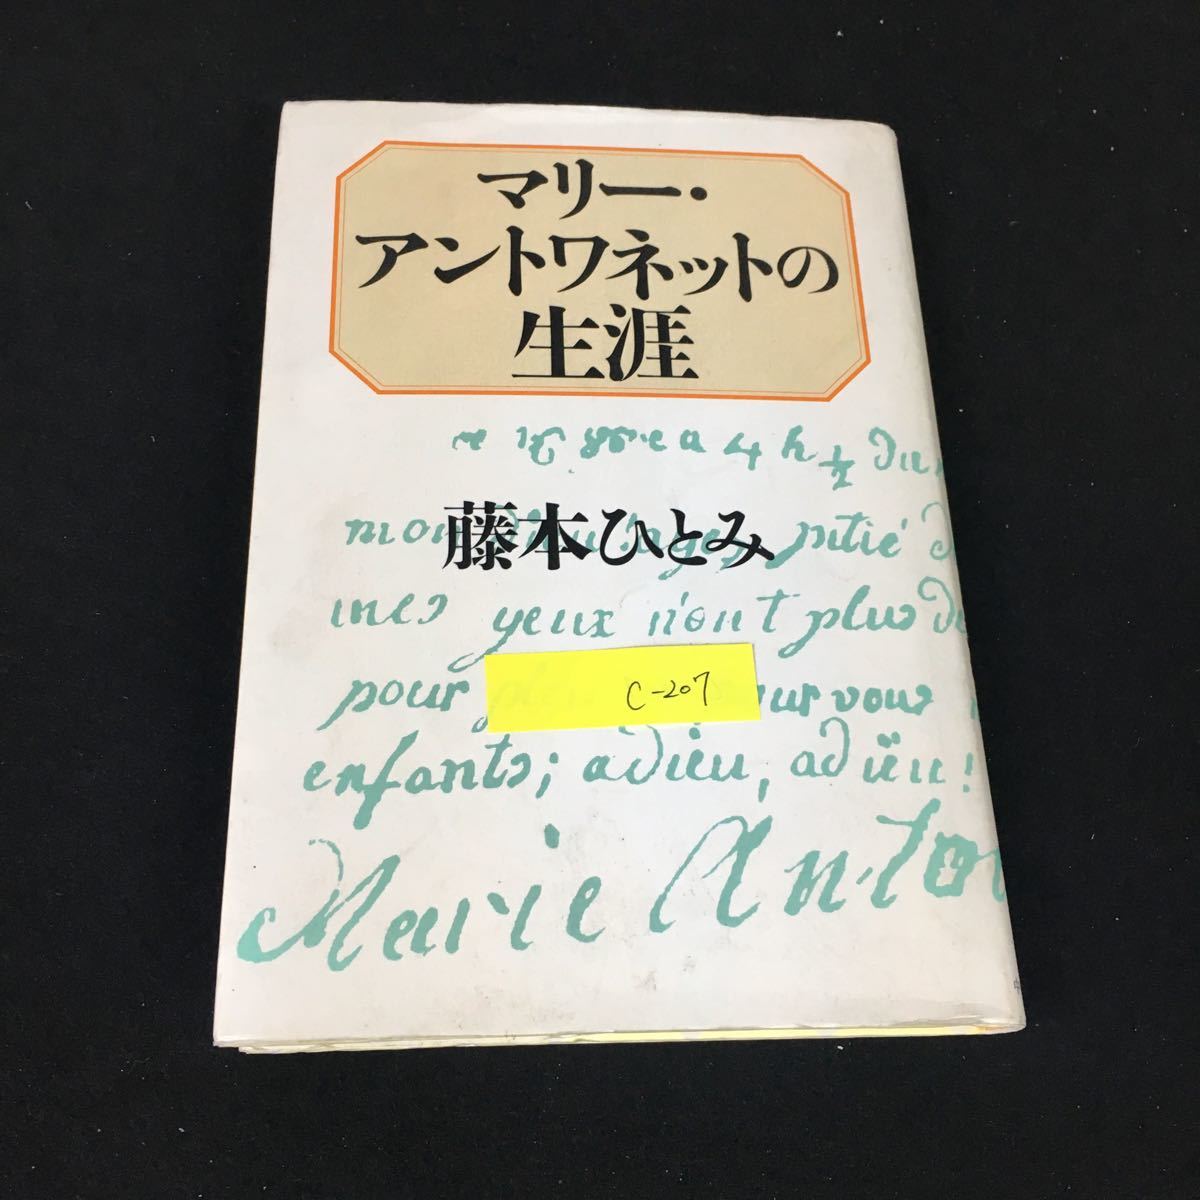 マリー・
アントワネットの
生涯
4 h ½ du
mon
藤本ひとみ
pitié
mes yeux n'ont plus de
pour
C-207
pour vous
enfants; adieu, adieu!
Marie Anto